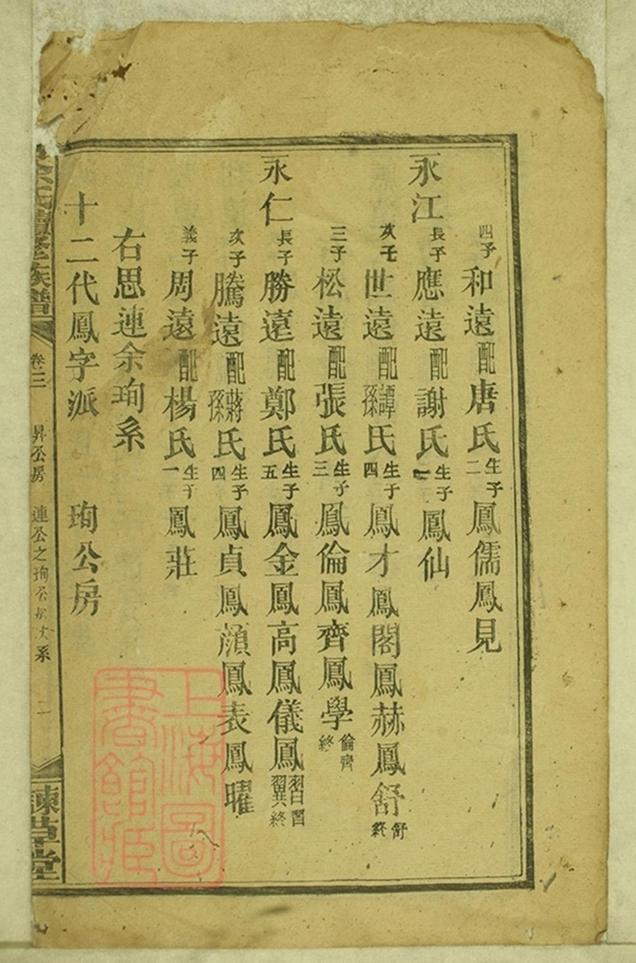 四子和遠配唐氏生子二鳳儒鳳見
永江
長子應遠配謝氏生子一鳳仙
次子世遠配譚孫氏生子四鳳才鳳閣鳳赫鳳舒舒終
三子松遠配張氏生子三鳳倫鳳齊鳳學倫齊終
永仁
長子勝遠配鄭氏生子五鳳金鳳高鳳儀鳳
次子騰遠配蔣孫氏生子四鳳貞鳳顏鳳表鳳曜
義子周遠配楊氏生子一鳳莊
右思連余珣系
十二代鳳字派 珣公房
族譜 卷三 昇公房 連公之珣 系 二
上海圖書館